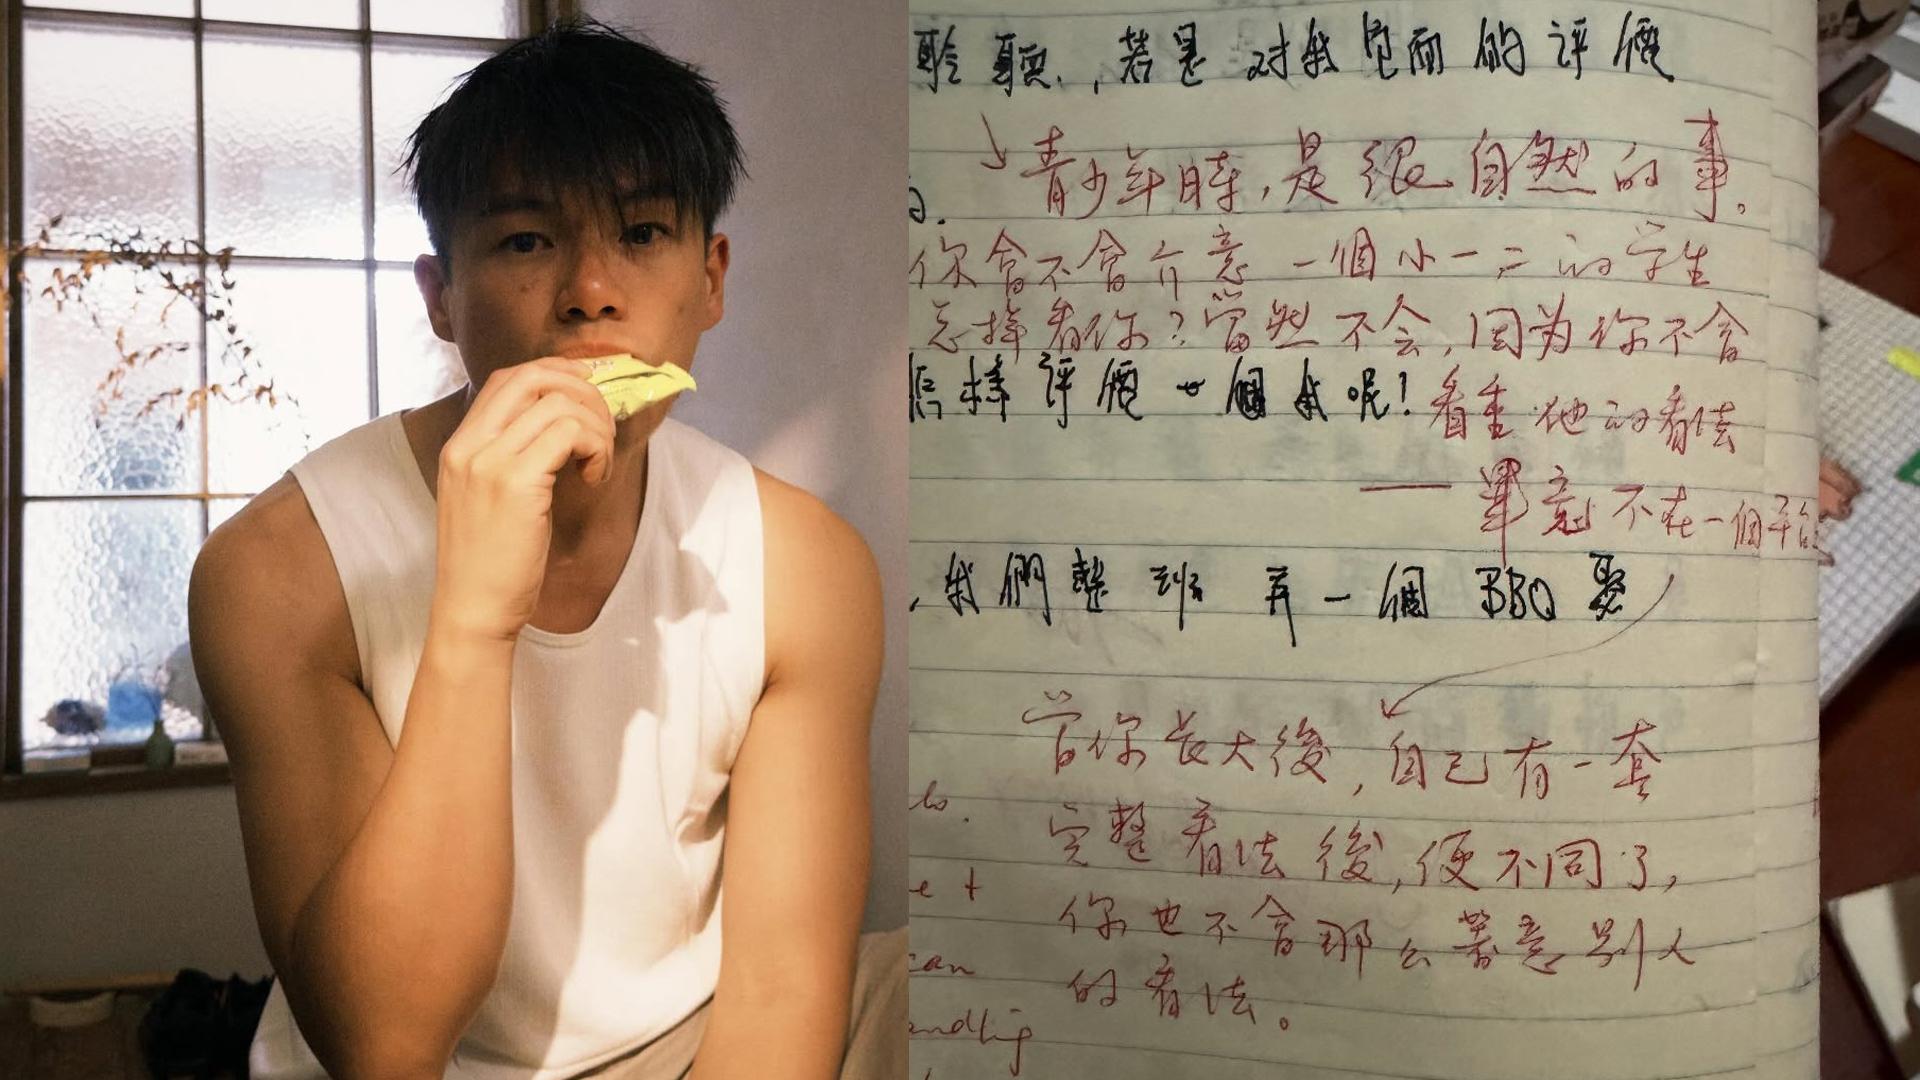 聆聽，若是對我負面的評價
青少年時，是很自然的事。
你會不會介意一個小一、二的学生
怎樣看你？當然不会，因为你不會
怎樣評價一個我呢！
看重他的看法
— 畢竟不在一個平台
，我們整班弄一個BBQ聚
當你長大後，自己有一套
完整看法後，便不同了，
你也不會那么著意別人
的看法。